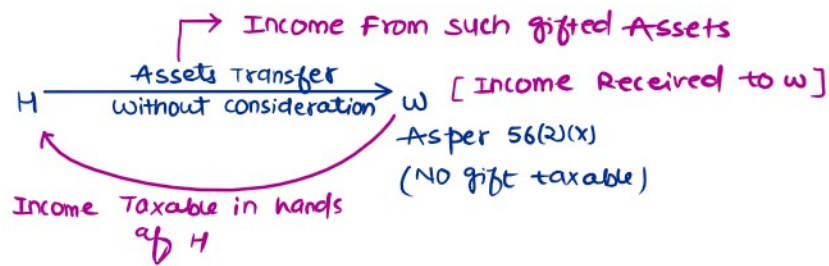 Income From such gifted Assets
Assets Transfer
H without consideration W [Income Received to W]
As per 56(2)(x)
(No gift taxable)
Income Taxable in hands
of H